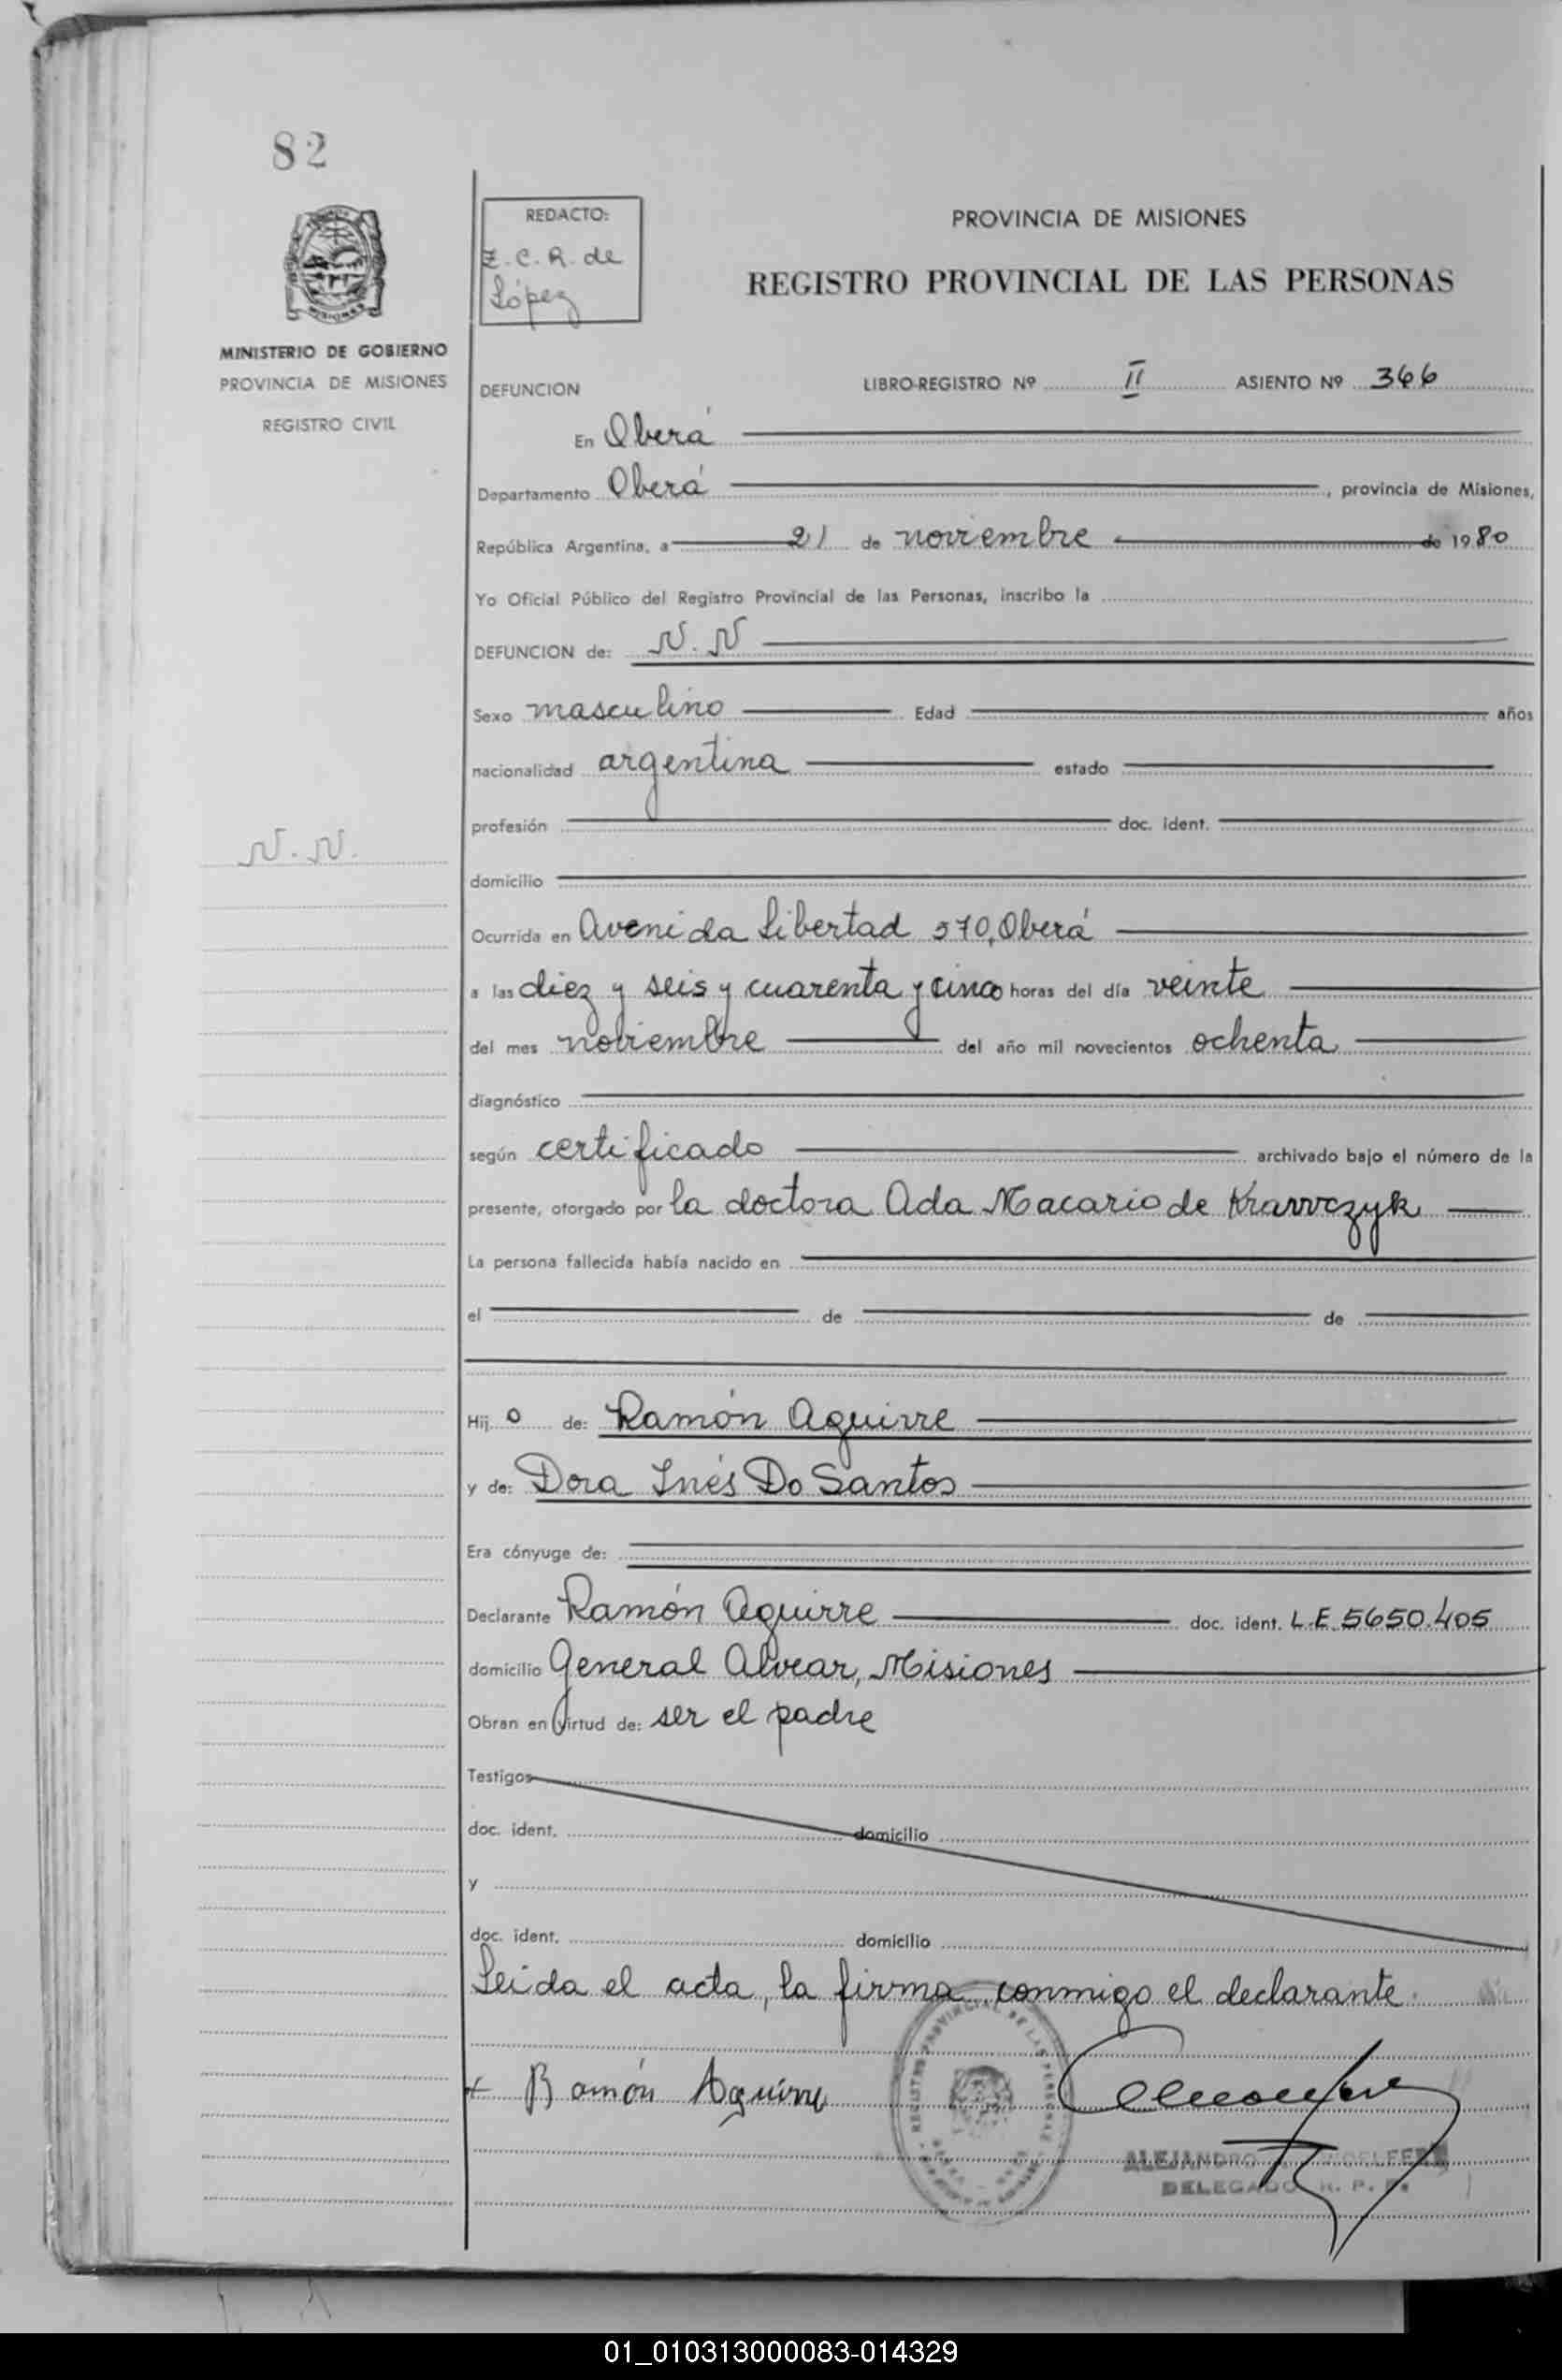 82
REDACTO:
E. C. R. de
López
MINISTERIO DE GOBIERNO
PROVINCIA DE MISIONES
REGISTRO CIVIL
N.N.
PROVINCIA DE MISIONES
REGISTRO PROVINCIAL DE LAS PERSONAS
DEFUNCION LIBRO-REGISTRO Nº II ASIENTO Nº 366
En Oberá
Departamento Oberá, provincia de Misiones,
República Argentina, a 21 de noviembre de 1980
Yo Oficial Público del Registro Provincial de las Personas, inscribo la
DEFUNCION de: N.N
Sexo masculino Edad años
nacionalidad argentina estado
profesión doc. ident.
domicilio
Ocurrida en Avenida Libertad 570, Oberá
a las diez y seis y cuarenta y cinco horas del día veinte
del mes noviembre del año mil novecientos ochenta
diagnóstico
según certificado archivado bajo el número de la
presente, otorgado por la doctora Ada Macario de Krawczyk
La persona fallecida había nacido en
el de de
Hijo de: Ramón Aguirre
y de: Dora Inés Do Santos
Era cónyuge de:
Declarante Ramón Aguirre doc. ident. L.E. 5650.405
domicilio General Alvear, Misiones
Obran en virtud de: ser el padre
Testigos
doc. ident. domicilio
y
doc. ident. domicilio
Leida el acta, la firma conmigo el declarante.
+ Ramón Aguirre
ALEJANDRO
DELEGADO R. P. P.
01_010313000083-014329